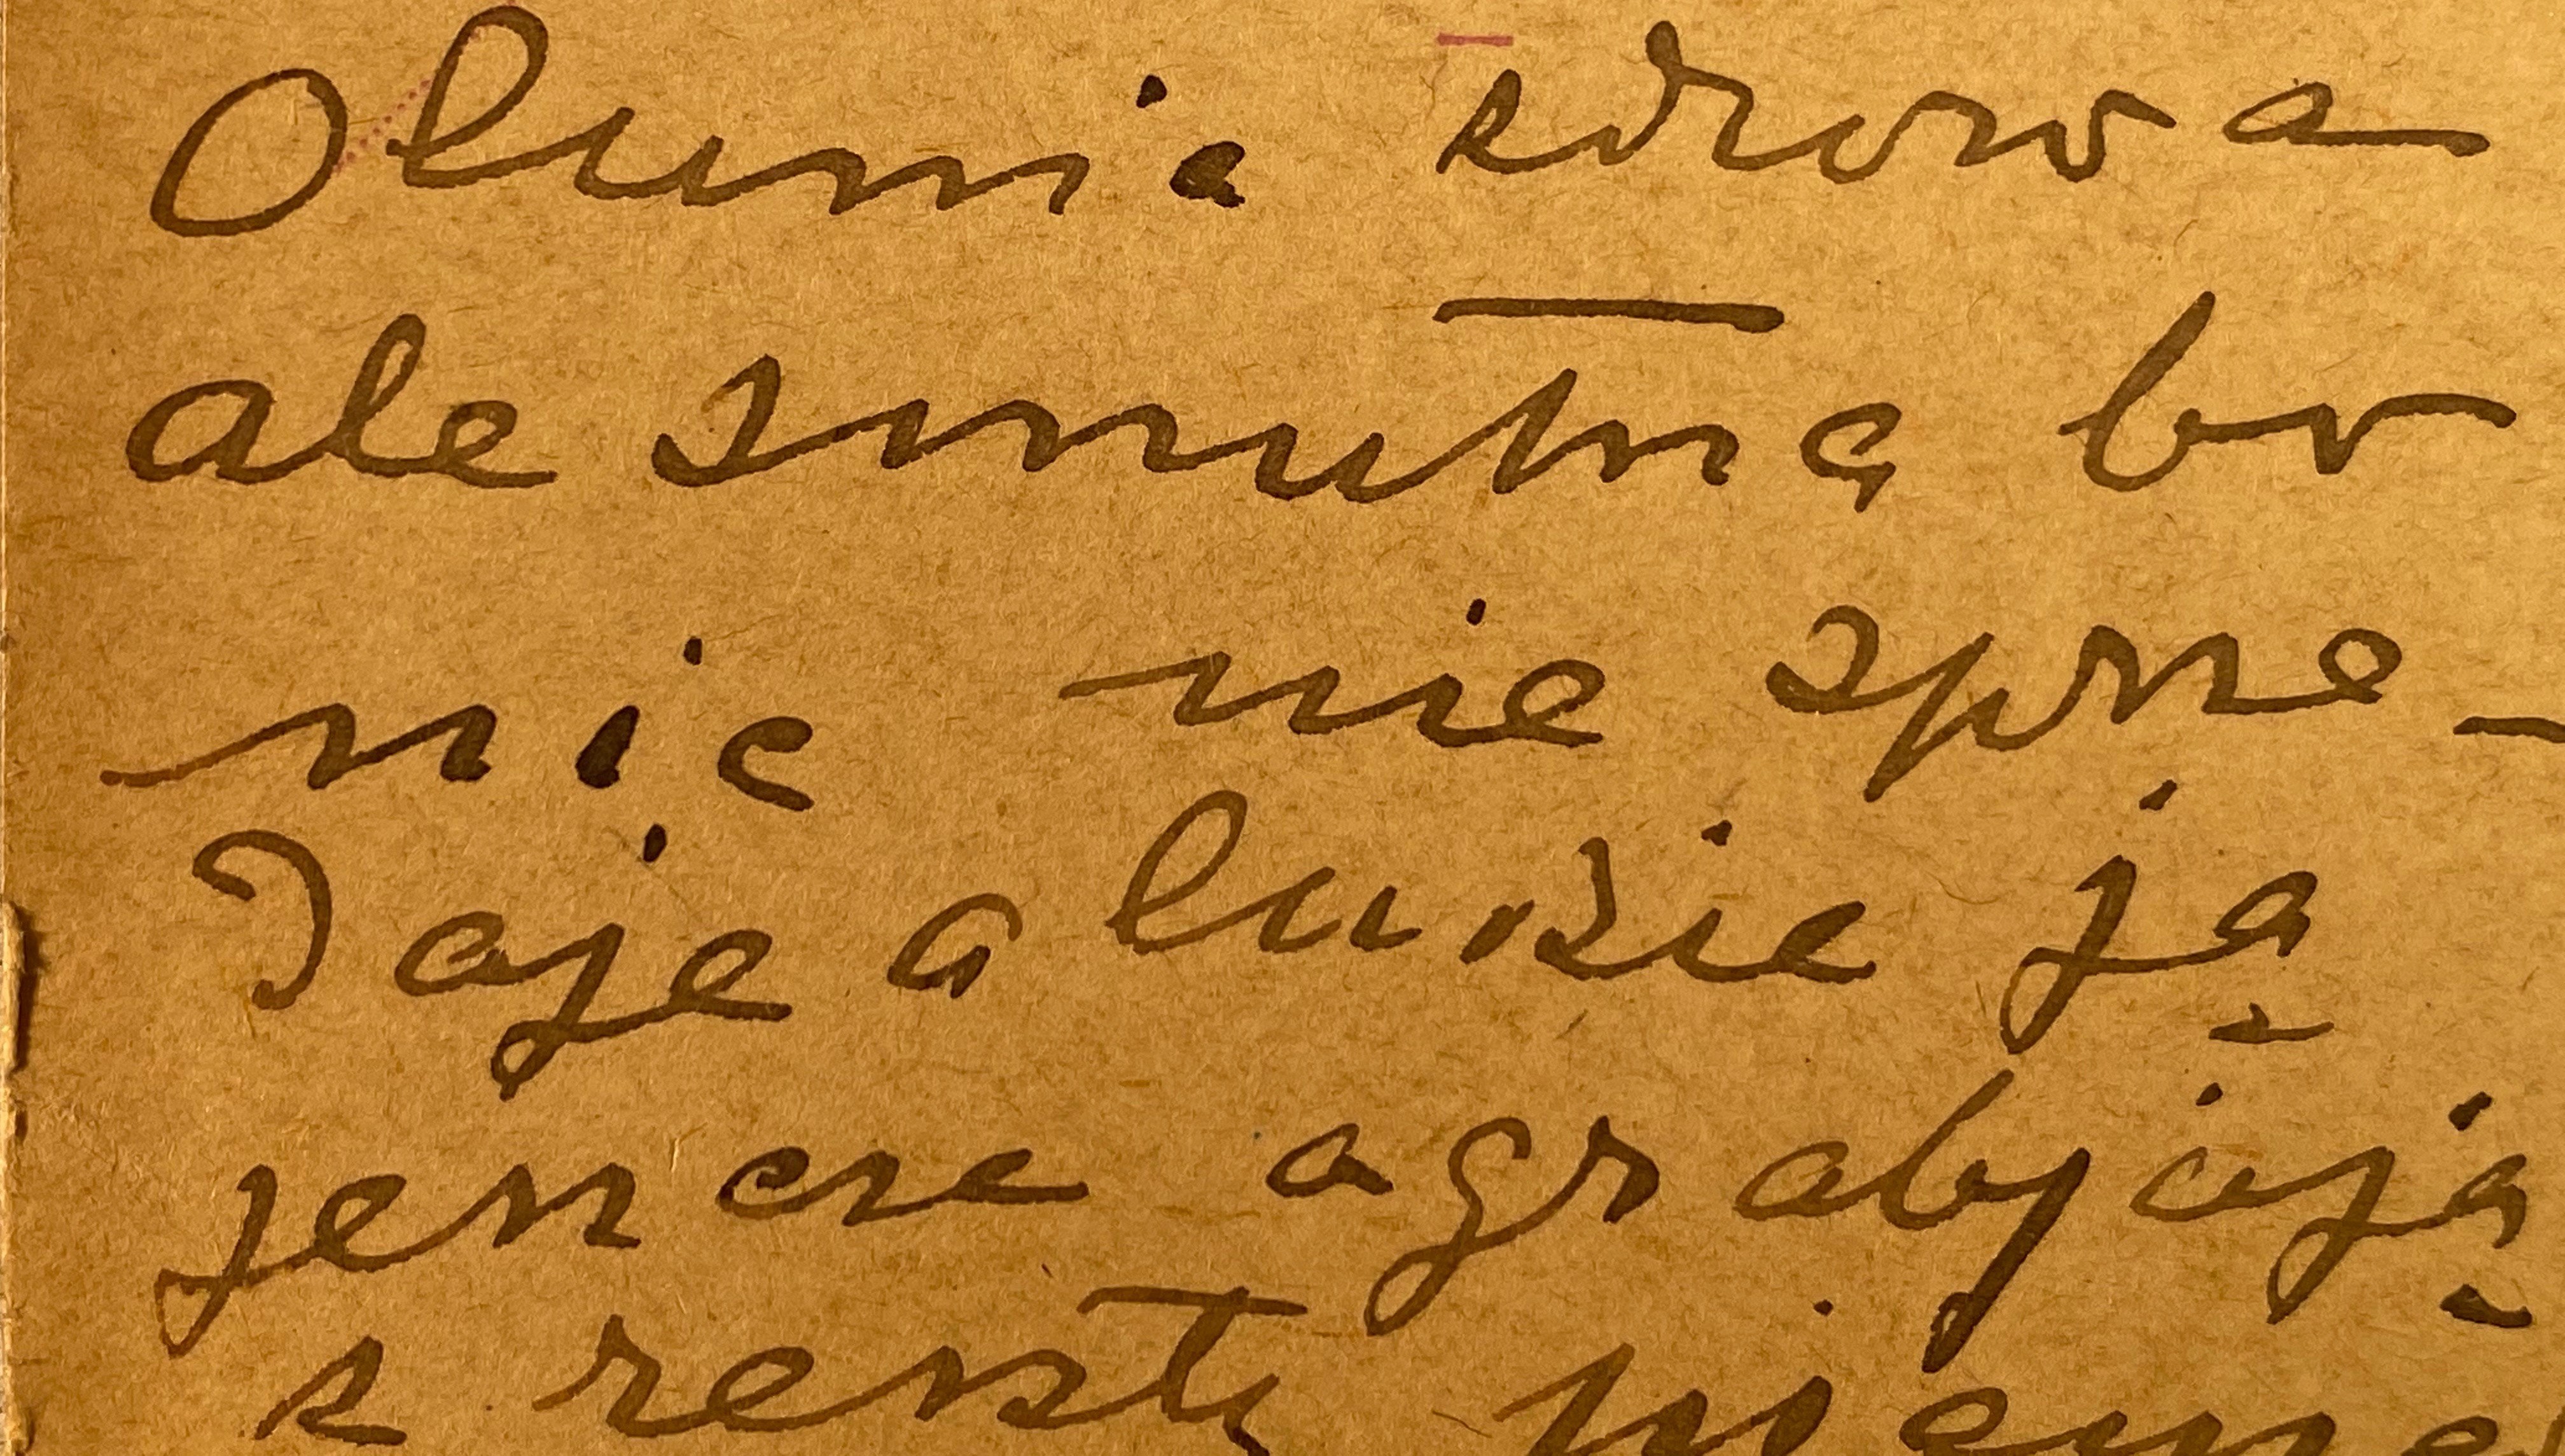 Olunia zdrowa
ale smutna bo
nic nie sprze-
daje a ludzie ją
jeszcze ograbjają
z reszty